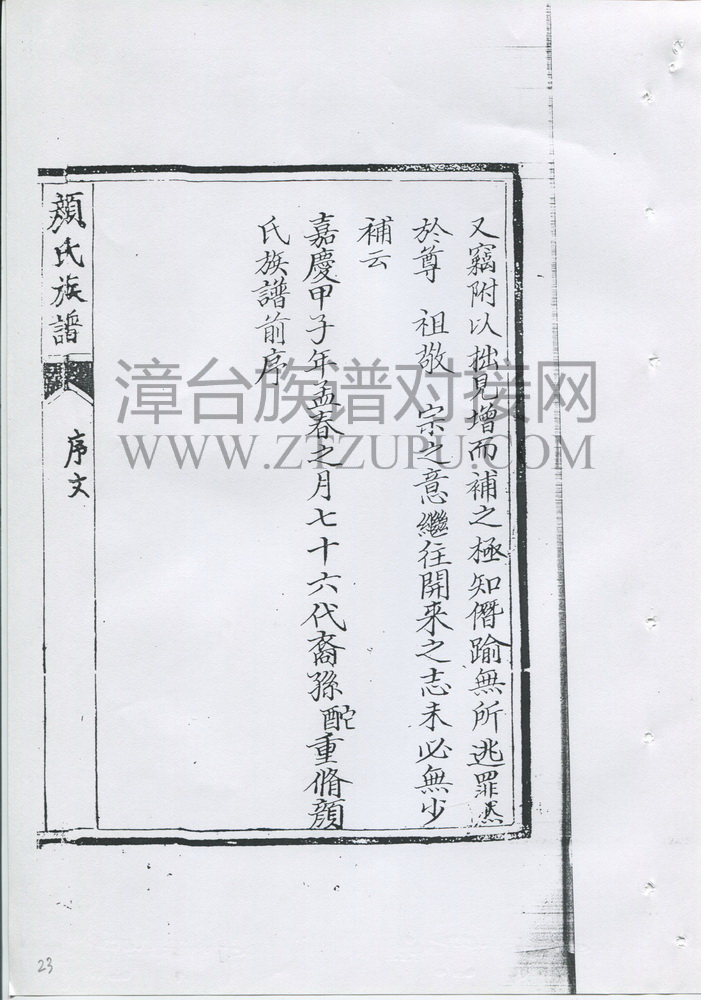 又竊附以拙見增而補之極知僭踰無所逃罪然
於尊 祖敬 宗之意繼往開來之志未必無少
補云
嘉慶甲子年孟春之月七十六代裔孫酡重脩顏
氏族譜前序
顏氏族譜
序文
漳台族谱对接网
WWW.ZTZUPU.COM
23